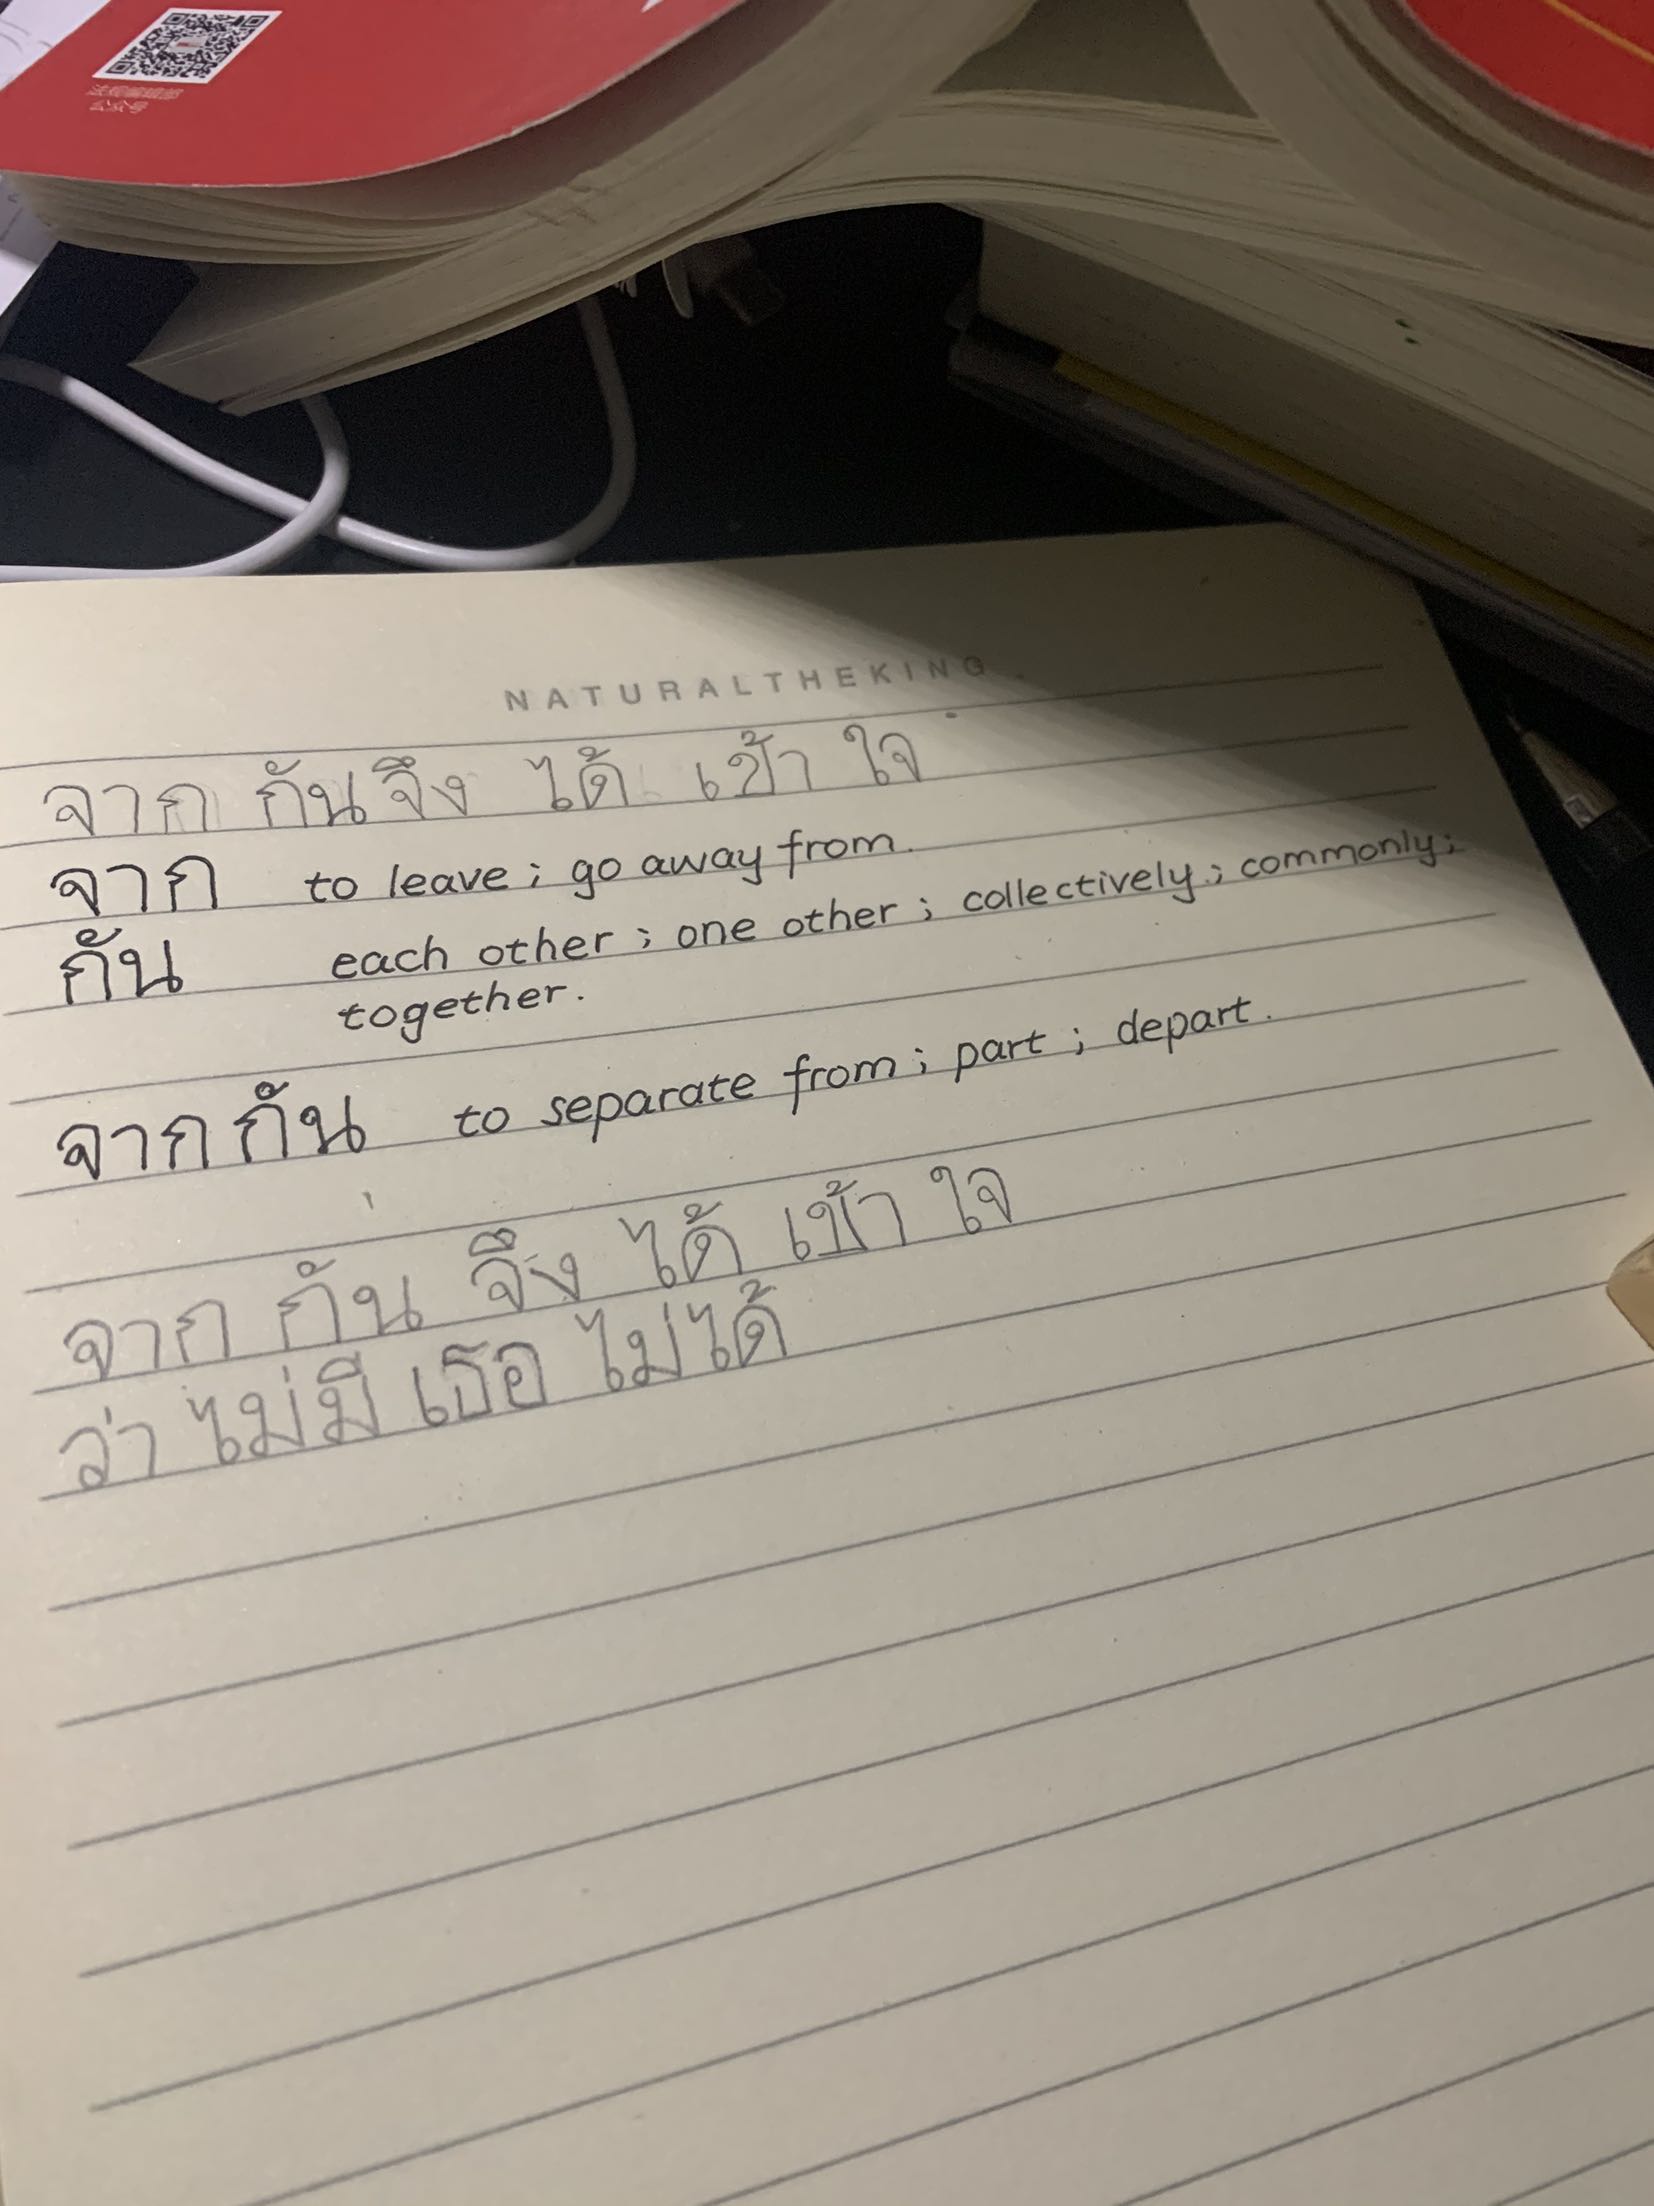 法规编辑部
公众号
NATURALTHEKING
จาก กันจึง ได้ เข้า ใจ
จาก to leave; go away from.
กัน each other; one other; collectively; commonly;
together.
จาก กัน to separate from; part; depart.
จาก กัน จึง ได้ เข้า ใจ
ว่า ไม่มี เธอ ไม่ได้